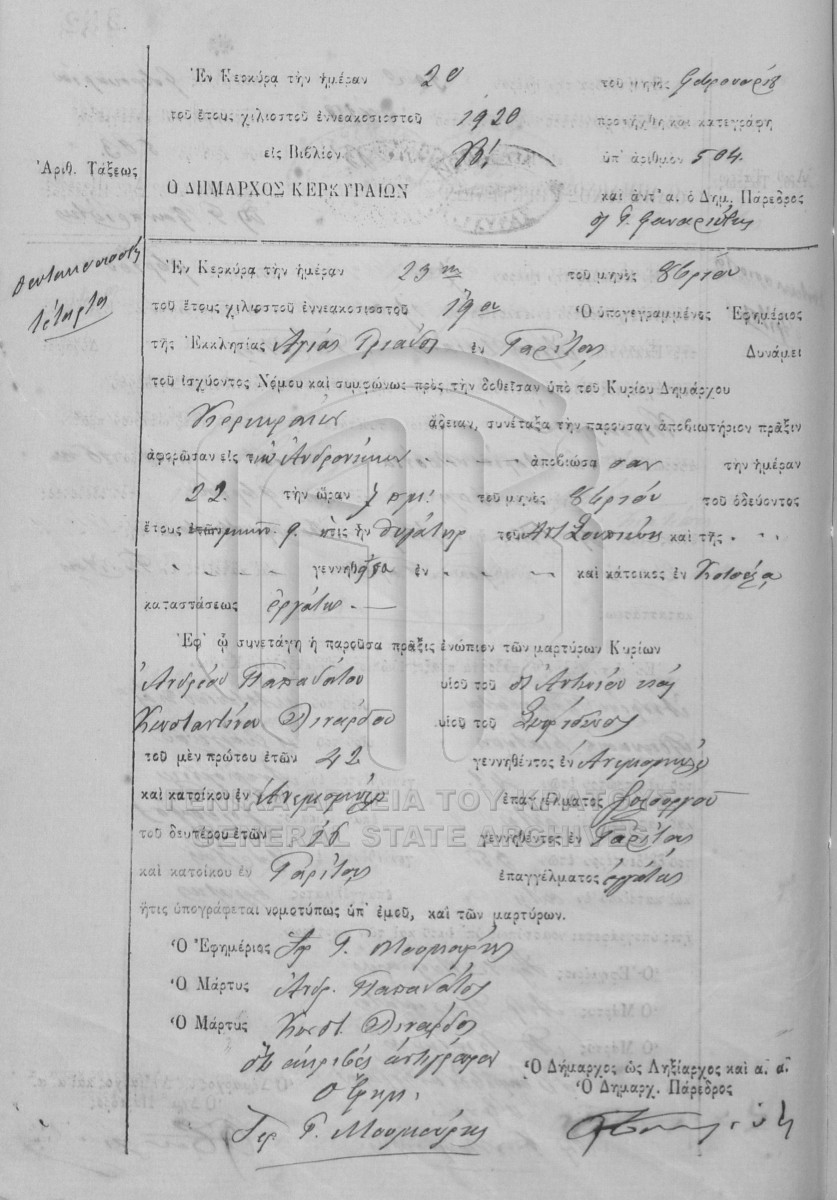 Ἐν Κερκύρᾳ τὴν ἡμέραν 20 τοῦ μηνὸς Φεβρουαρίου
τοῦ ἔτους χιλιοστοῦ ἐννεακοσιοστοῦ 1920 προσήχθη καὶ κατεγράφη
εἰς Βιβλίον Β! ὑπ' ἀριθμὸν 504.
Ἀριθ. Τάξεως
Ὁ ΔΗΜΑΡΧΟΣ ΚΕΡΚΥΡΑΙΩΝ καὶ ἀντ' α. ὁ Δημ. Πάρεδρος
Πεντακοσιοστὴ
τετάρτη
Ἐν Κερκύρᾳ τὴν ἡμέραν 23 τοῦ μηνὸς
τοῦ ἔτους χιλιοστοῦ ἐννεακοσιοστοῦ 19ου Ὁ ὑπογεγραμμένος Ἐφημέριος
τῆς Ἐκκλησίας Ἁγίας Τριάδος ἐν Γαρίτσης Δυνάμει
τοῦ ἰσχύοντος Νόμου καὶ συμφώνως πρὸς τὴν δοθεῖσαν ὑπὸ τοῦ Κυρίου Δημάρχου
Κερκυραίων ἄδειαν, συνέταξα τὴν παροῦσαν ἀποβιωτήριον πρᾶξιν
ἀφορῶσαν εἰς τὴν Ἀνδρονίκην ἀποβιώσασαν τὴν ἡμέραν
22. τὴν ὥραν 7 π.μ. τοῦ μηνὸς τοῦ ὁδεύοντος
ἔτους 9. ἥτις ἦν θυγάτηρ τοῦ Ἀντ καὶ τῆς
γεννηθεῖσα ἐν καὶ κάτοικος ἐν
καταστάσεως ἐργάτις
Ἐφ' ᾧ συνετάγη ἡ παροῦσα πρᾶξις ἐνώπιον τῶν μαρτύρων Κυρίων
Ἀνδρέου Παπαδάτου υἱοῦ τοῦ Ἀντωνίου καὶ
Κωνσταντίνου Λινάρδου υἱοῦ τοῦ Σπυρίδωνος
τοῦ μὲν πρώτου ἐτῶν 42 γεννηθέντος ἐν Ἀνεμομύλῳ
καὶ κατοίκου ἐν Ἀνεμομύλῳ ἐπαγγέλματος ξυλουργοῦ
ΓΕΝΙΚΑ ΑΡΧΕΙΑ ΤΟΥ ΚΡΑΤΟΥΣ
GENERAL STATE ARCHIVES
τοῦ δευτέρου ἐτῶν γεννηθέντος ἐν Γαρίτσης
καὶ κατοίκου ἐν Γαρίτσης ἐπαγγέλματος ἐργάτης
ἥτις ὑπογράφεται νομοτύπως ὑπ' ἐμοῦ, καὶ τῶν μαρτύρων.
Ὁ Ἐφημέριος Ἱερ. Γ.
Ὁ Μάρτυς Ἀνδρ. Παπαδάτος
Ὁ Μάρτυς Κωνστ. Λινάρδος
Ὅτι ἀκριβὲς ἀντίγραφον
Ὁ Δήμαρχος ὡς Ληξίαρχος καὶ α. α.
Ὁ Ἐφημ. Ὁ Δημαρχ. Πάρεδρος
Ἱερ. Γ.